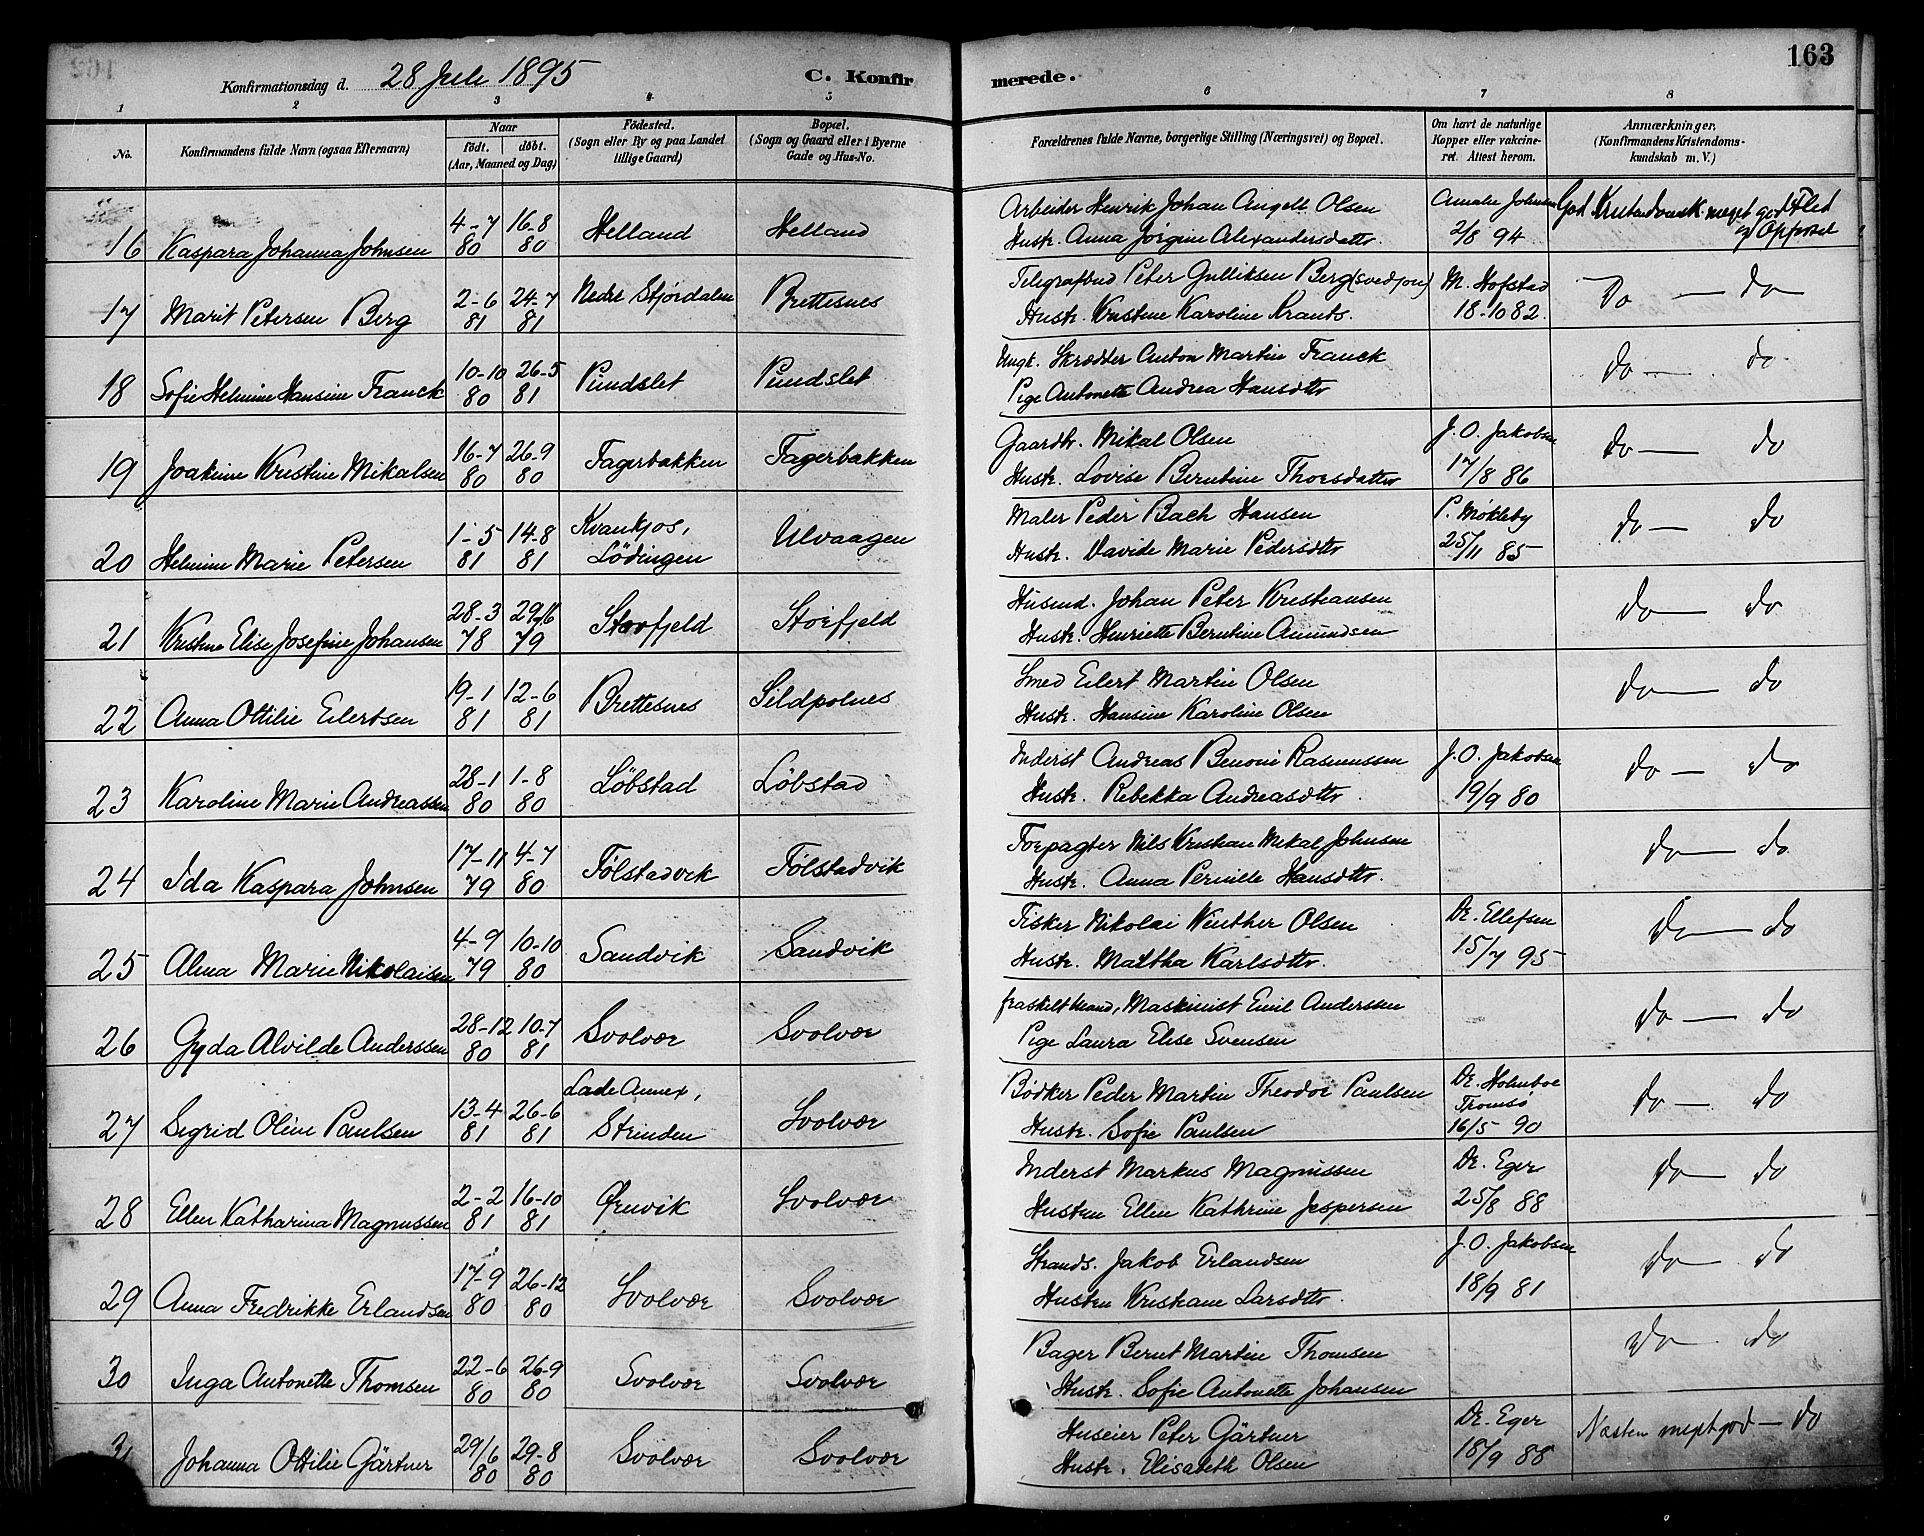 163
Konfirmationsdag d. 28 Juli 1895
C. Konfir merede.
1 2 3 4 5 6 7 8
No. Konfirmandens fulde Navn (ogsaa Efternavn) Naar født. døbt. (Aar, Maaned og Dag) Fødested. (Sogn eller By og paa Landet tillige Gaard) Bopæl. (Sogn og Gaard eller i Byerne Gade og Hus-No. Forældrenes fulde Navne, borgerlige Stilling (Næringsvei) og Bopæl. Om havt de naturlige Kopper eller vakcineret. Attest herom. Anmærkninger. (Konfirmandens Kristendomskundskab m. V.)
16 Kaspara Johanna Johnsen 4-7 80 16-8 80 Helland Helland Arbeider Henrik Johan Angell Olsen
Hustr. Anna Jørgine Alexandersdatter. Amalie Johnsen 2/8 94 God Kristendomsk. meget god Flid og Opførsel
17 Marit Petersen Berg 2-6 81 24-7 81 Nedre Stjørdalen Brettesnes Telegrafbud Peter Gulliksen Berg
Hustr. Kristine Karoline Krants. M. Hofstad 18-10 82. Do — do
18 Sofie Helmine Hansine Franck 10-10 80 26-5 81 Pundslet Pundslet Ungk. Skrædder Anton Martin Franck
Pige Antonette Andrea Hansdtr do — do
19 Joakime Kristine Mikalsen 16-7 80 26-9 80 Fagerbakken Fagerbakken Gaardbr. Mikal Olsen
Hustr. Lovise Berntine Thoresdatter J. O. Jakobsen 17/8 86 do — do
20 Helmine Marie Petersen 1-5 81 14-8 81 Kvankjos, Lödingen Ulvaagen Maler Peder Bach Hansen
Hustr. Davide Marie Pedersdtr P. Møkleby 25/11 85 do — do
21 Kristine Elise Josefine Johansen 28-3 78 29/6 79 Storfjeld Storfjeld Husmd. Johan Peter Kristiansen
Hustr. Henriette Berntine Amundsen do — do
22 Anna Ottilie Eilertsen 19-1 81 12-6 81 Brettesnes Sildpolnes Smed Eilert Martin Olsen
Hustr. Hansine Karoline Olsen do — do
23 Karoline Marie Andreassen 28-1 80 1-8 80 Löbstad Löbstad Inderst Andreas Benoni Rasmussen
Hustr. Rebekka Andreasdtr. J. O. Jakobsen 19/9 80 do — do
24 Ida Kaspara Johnsen 17-11 79 4-7 80 Følstadvik Følstadvik Forpagter Nils Kristian Mikal Johnsen
Hustr. Anna Pernille Hansdtr. do — do
25 Alma Marie Nikolaisen 4-9 79 10-10 80 Sandvik Sandvik Fisker Nikolai Winther Olsen
Hustr. Maltha Karlsdtr. Dr. Ellefsen 15/7 95 do — do
26 Gyda Alvilde Anderssen 28-12 80 10-7 81 Svolvær Svolvær fraskilt Mand, Maskinist Emil Anderssen
Pige Laura Elise Svensen do — do
27 Sigrid Oline Paulsen 13-4 81 26-6 81 Lade Annex, Strinden Svolvær Bödker Peder Martin Theodor Paulsen
Hustr. Sofie Paulsen Dr. Holmboe Tromsø 16/5 90 do — do
28 Ellen Katharina Magnussen 2-2 81 16-10 81 Ørnvik Svolvær Inderst Markus Magnussen
Hustru Ellen Kathrine Jespersen Dr. Eger 25/8 88 do — do
29 Anna Fredrikke Erlandsen 17-9 80 26-12 80 Svolvær Svolvær Strands. Jakob Erlandsen
Hustru Kristiane Larsdtr. J. O. Jakobsen 18/9 81 do — do
30 Inga Antonette Thomsen 22-6 80 26-9 80 Svolvær Svolvær Bager Bernt Martin Thomsen
Hustr. Sofie Antonette Johansen do — do
31 Johanna Ottilie Gärtner 29/6 80 29-8 80 Svolvær Svolvær Huseier Peter Gärtner
Hustr. Elisabeth Olsen Dr. Eger 18/9 88 Næsten meget god — do